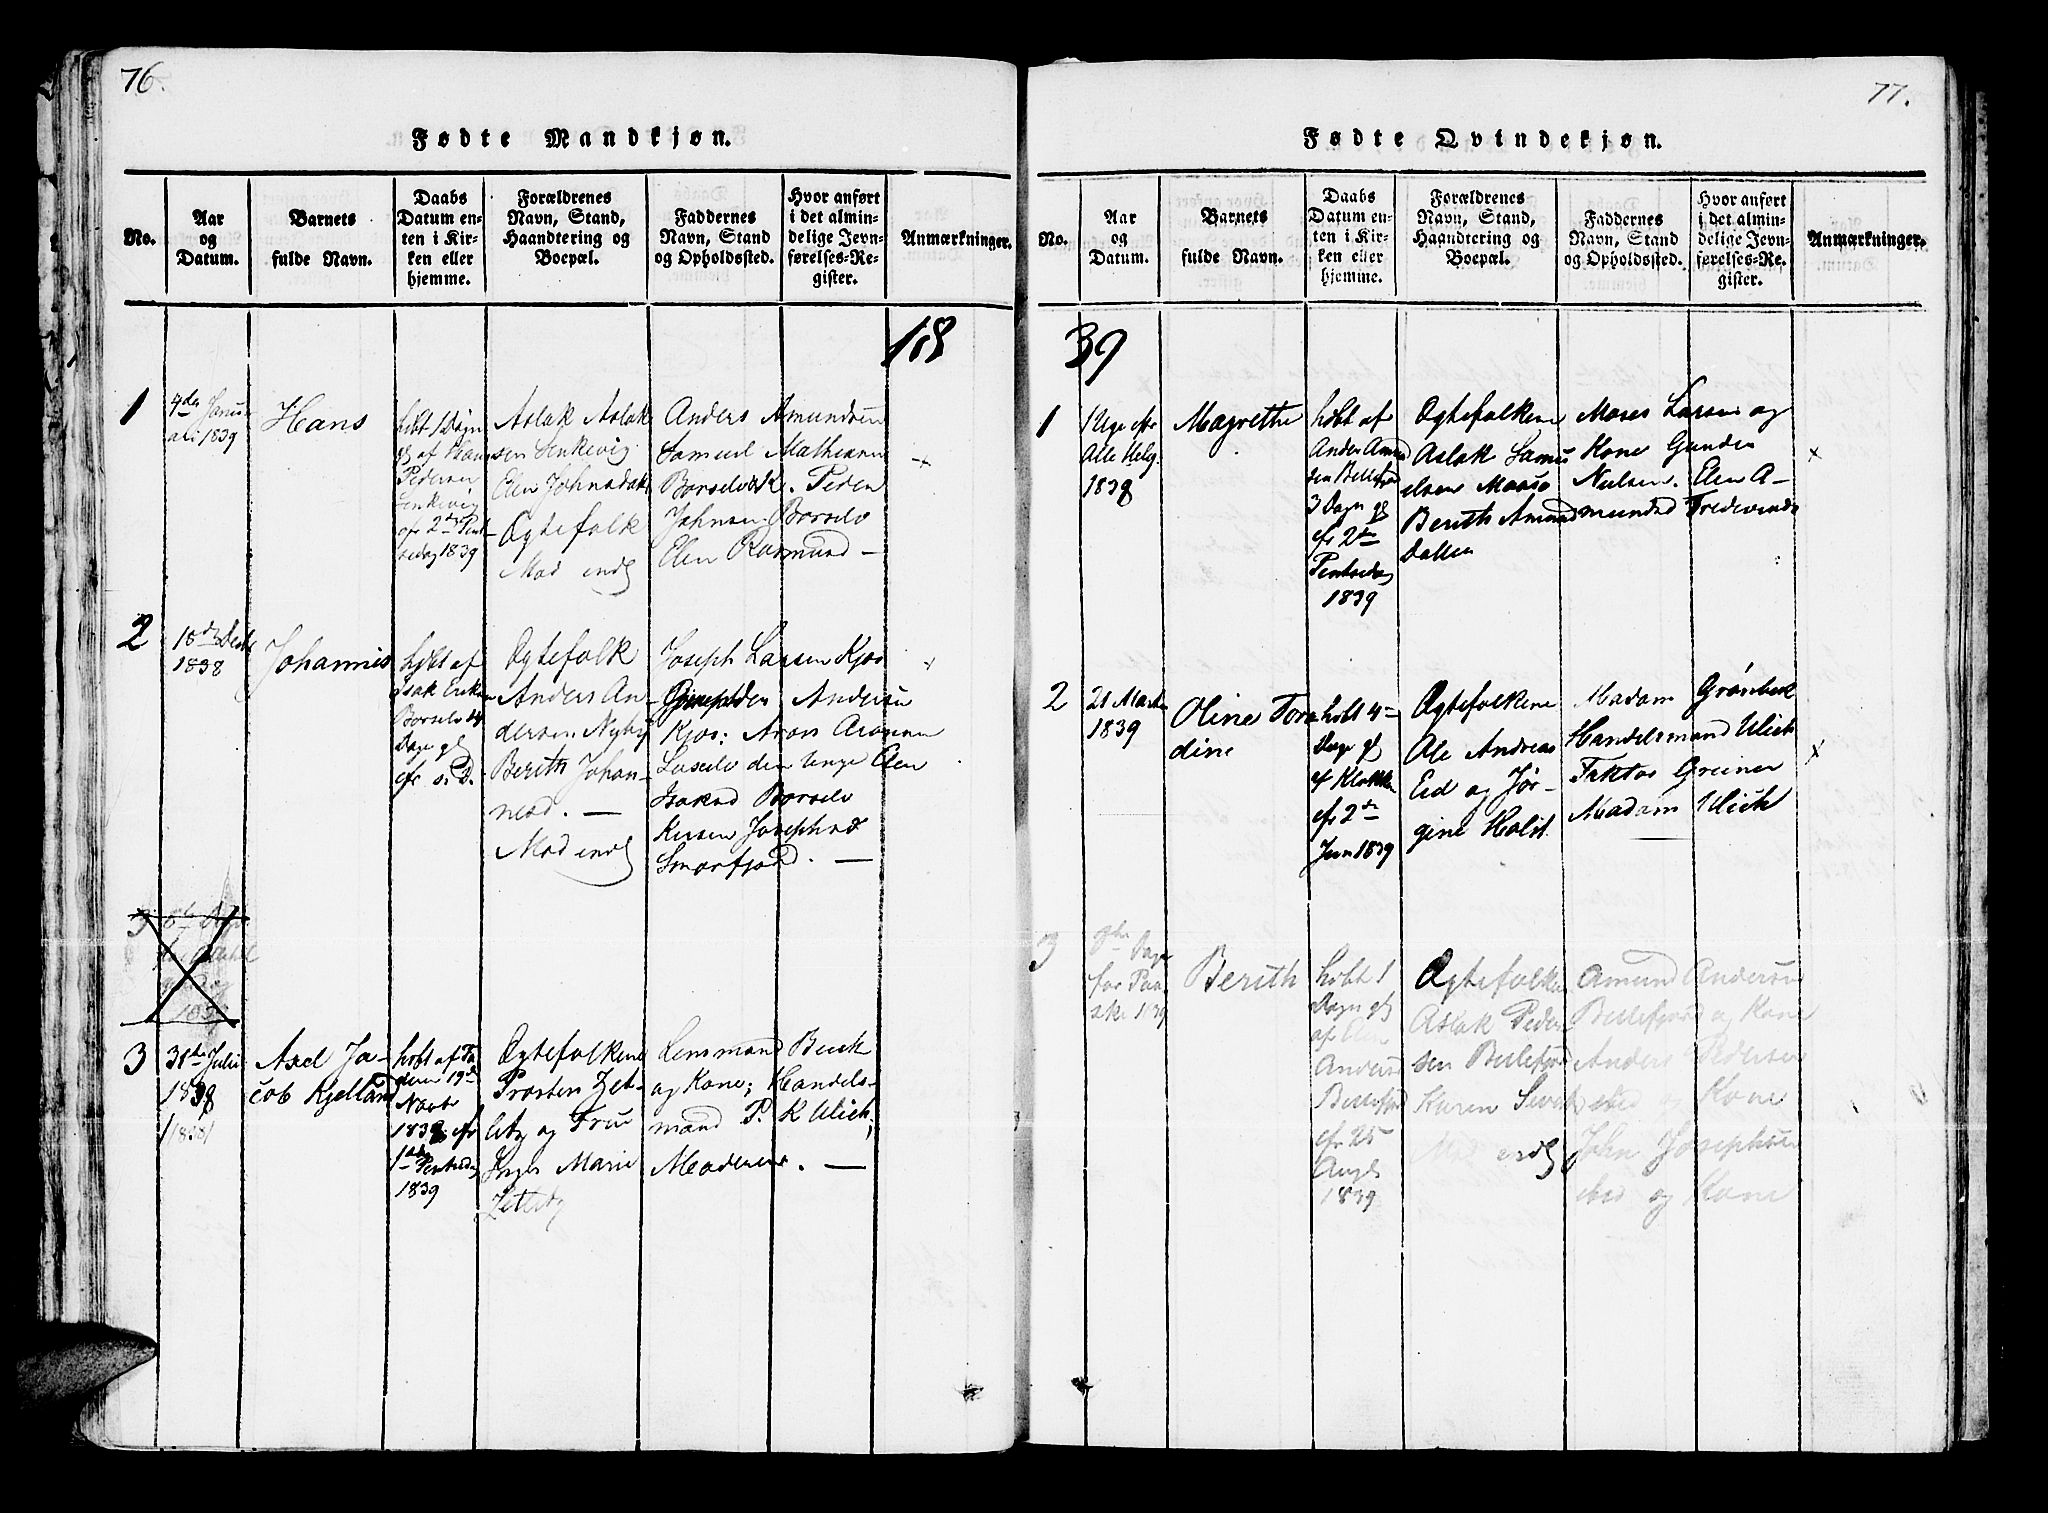 76.
Fødte Mandkjøn.
No.
Aar
og
Datum.
Barnets
fulde Navn.
Daabs
Datum en-
ten i Kir-
ken eller
hjemme.
Forældrenes
Navn, Stand,
Haandtering og
Boepæl.
Faddernes
Navn, Stand
og Opholdssted.
Hvor anført
i det almin-
delige Jevn-
førelses-Re-
gister.
Anmærkninger.
18
1
4de Janu-
ari 1839
Hans
hibt 1 Dagn
gl af Hans
Pedersen
Senkevig
efr 2den Pent
sedag 1839
Aslak Aslak
sen Senkevig
Elen Johnsdatr
Ogtefolk
Mod endl
Anders Amundsen
Samuel Mathisen
Borselv & K. Peder
Johnsen Borselv
Elen Rasmusd —
+
2
18de Decbr
1838
Johannis
hibt af
Isak Erikse
Borselv 14
Dage gl
efr s. D.
Ogtefolk
Anders An-
dersen Nyby
Berith Johan-
nesd. —
Mod endl
Joseph Larsen Kjos
Andersen
Kjos; Arons Aronsen
Laxelv den Unge Elen
Isaksd Borselv
Kirsten Josephsd
Smorfjord. —
+
3
1838
3
31de Julii
1838
/1838/
Axel Ja-
cob Kjelland
hibt af Fa
deren 19de
Novbr
1838 efr
1ste Pentseda
1839
Ogtefolkene
Prosten Zet-
litz og Frue
Inger Marie
Zetlitz
Lensmand Buck
og Kone; Handels-
mand P. K Ulich;
Moderen. —
77.
Fødte Qvindekjøn.
No.
Aar
og
Datum.
Barnets
fulde Navn.
Daabs
Datum en-
ten i Kir-
ken eller
hjemme.
Forældrenes
Navn, Stand,
Haandtering og
Boepæl.
Faddernes
Navn, Stand
og Opholdssted.
Hvor anført
i det almin-
delige Jevn-
førelses-Re-
gister.
Anmærkninger.
39
1
1 Uge efr
Alle Helg.
1838
Magrethe
hibt af
Anders Amund
sen Bellefior
3 Dagn gl
efr 2den
Pentseda
1839
Ogtefolkene
Aslak Samu
elsen Maasø
Berith Amund
Datter
Moses Larsen og
Kone Gunder
Nielsen. Elen A-
mundsd Tredevendt
+
2
21 Marts
1839
Oline Tora
dine
hibt 4
Dage gl
af Klokken
efr 2den
Jun 1839
Ogtefolkene
Ole Andreas
Eid og Jør-
gine Holst
Madam Grønbeck
Handelsmand Ulich
Faktor Greiner
Madam Ulich
+
3
8te Dage
for Paa
ske 1839
Berith
hibt 1
Dagn gl
af Elen
Andersd
Bellefjord
efr 25
Augs
1839
Ogtefolken
Aslak Peder
sen Bellefjord
Karen Sivert
Mod endl
Amund Andersen
Bellefjord og Kone
Anders Pedersen
sted og Kone
John Josephsen
ibid og Kone